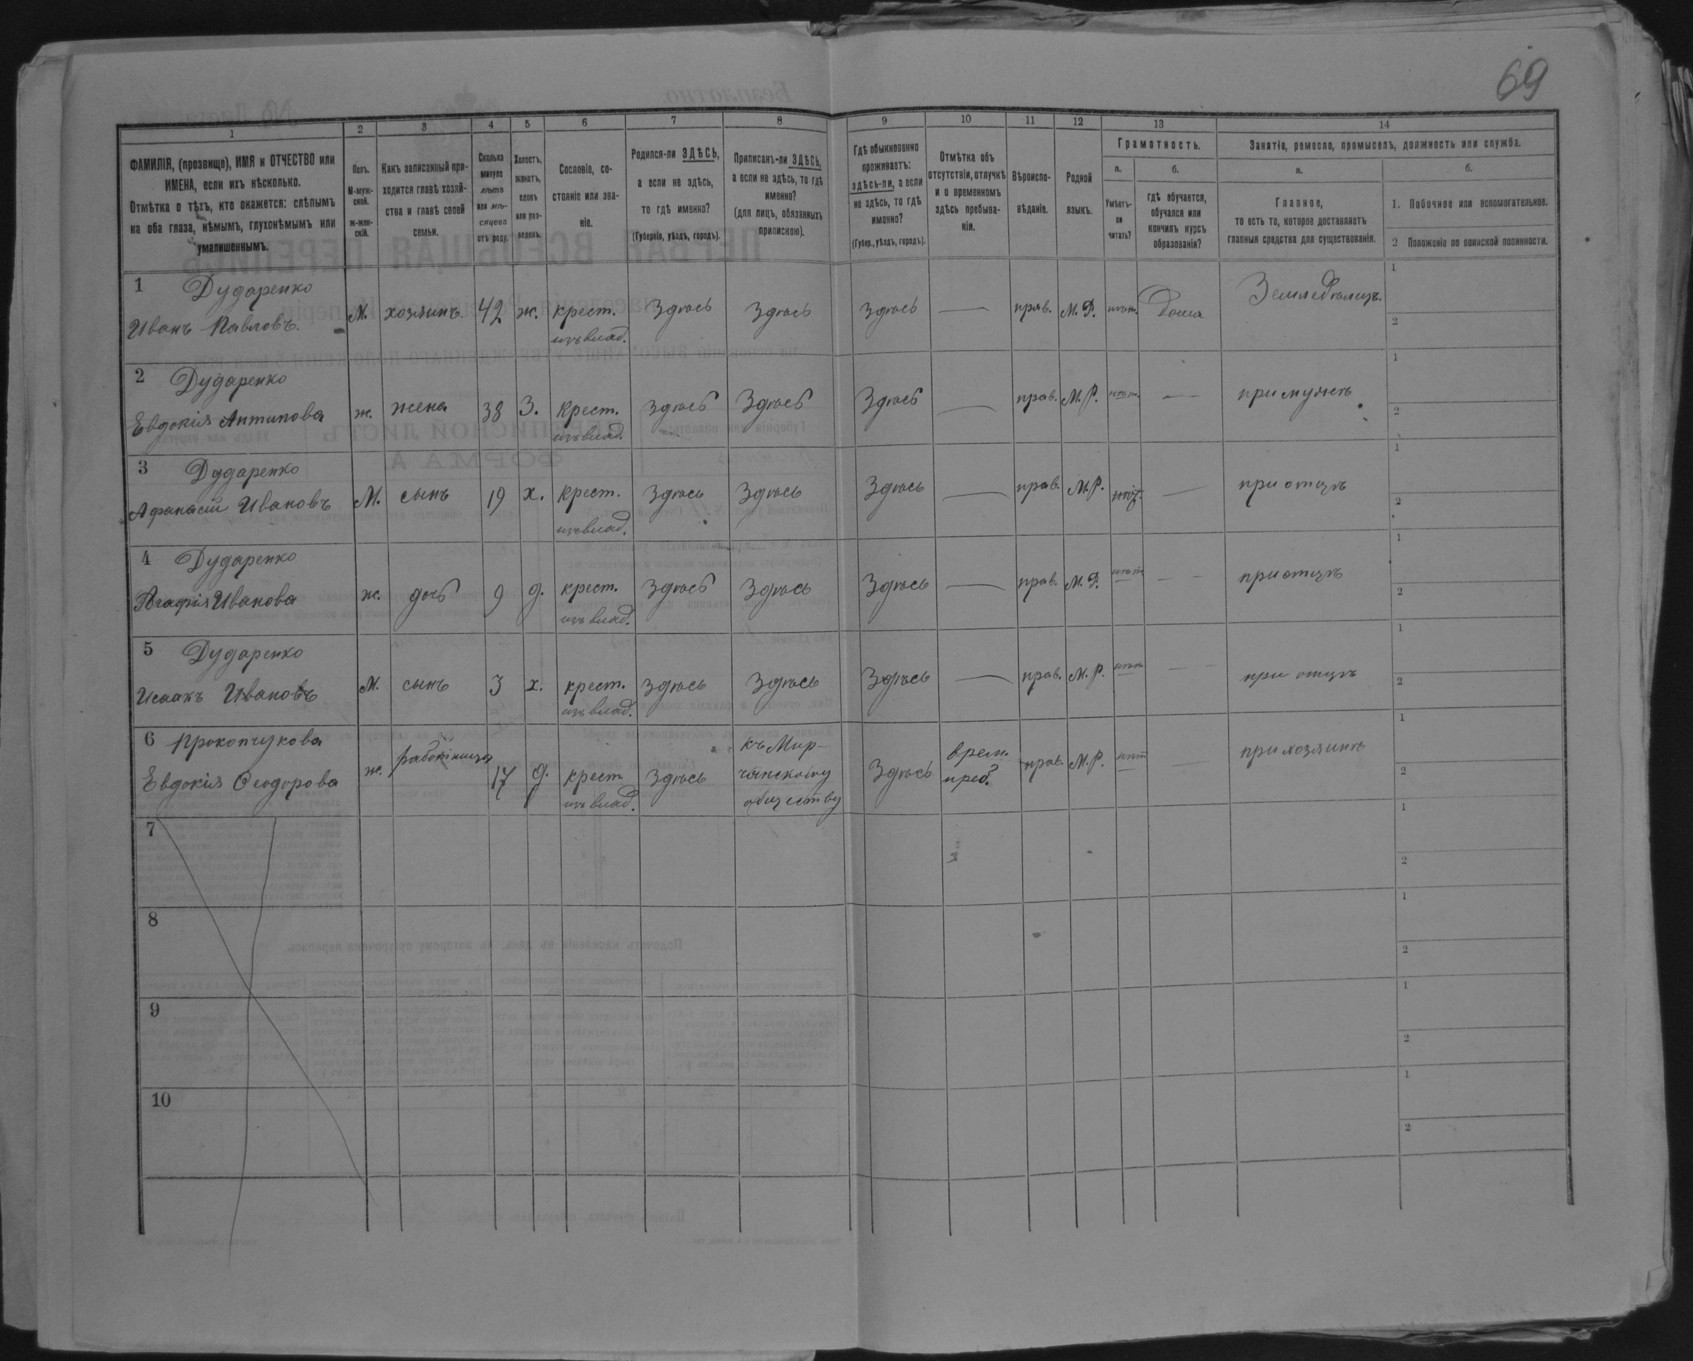 69
1 2 3 4 5 6 7 8 9 10 11 12 13 14
ФАМИЛІЯ, (прозвище), ИМЯ и ОТЧЕСТВО или ИМЕНА, если ихъ нѣсколько.
Отмѣтка о тѣхъ, кто окажется: слѣпымъ на оба глаза, нѣмымъ, глухонѣмымъ или умалишеннымъ.
Полъ.
М-мужской.
ж-женскій.
Какъ записанный приходится главѣ хозяйства и главѣ своей семьи.
Сколько минуло лѣтъ или мѣсяцевъ отъ роду.
Холостъ, женатъ, вдовъ или разведенъ.
Сословіе, состояніе или званіе.
Родился-ли ЗДѢСЬ, а если не здѣсь, то гдѣ именно?
(Губернія, уѣздъ, городъ).
Приписанъ-ли ЗДѢСЬ, а если не здѣсь, то гдѣ именно?
(для лицъ, обязанныхъ припискою).
Гдѣ обыкновенно проживаетъ: здѣсь-ли, а если не здѣсь, то гдѣ именно?
(Губер., уѣздъ, городъ).
Отмѣтка объ отсутствіи, отлучкѣ и о временномъ здѣсь пребываніи.
Вѣроисповѣданіе.
Родной языкъ.
Грамотность.
а.
Умѣетъ-ли читать?
б.
Гдѣ обучается, обучался или кончилъ курсъ образованія?
Занятіе, ремесло, промыселъ, должность или служба.
а.
Главное,
то есть то, которое доставляетъ главныя средства для существованія.
б.
1. Побочное или вспомогательное.
2 Положеніе по воинской повинности.
1 Дударенко
Иванъ Павловъ. М. хозяинъ 42 ж. крест. изъ влад. Здѣсь Здѣсь Здѣсь — прав. М.Р. Дома Земледѣлецъ. 1 2
2 Дударенко
Евдокія Антипова ж. жена 38 З. крест. изъ влад. Здѣсь Здѣсь Здѣсь — прав. М.Р. нѣтъ — при мужѣ 1 2
3 Дударенко
Афанасій Ивановъ М. сынъ 19 х. крест. изъ влад. Здѣсь Здѣсь Здѣсь — прав. М.Р. нѣтъ — при отцѣ 1 2
4 Дударенко
Агафія Иванова ж. дочь 9 д. крест. изъ влад. Здѣсь Здѣсь Здѣсь — прав. М.Р. нѣтъ — при отцѣ 1 2
5 Дударенко
Исаакъ Ивановъ М. сынъ 3 х. крест. изъ влад. Здѣсь Здѣсь Здѣсь — прав. М.Р. нѣтъ — при отцѣ 1 2
6 Прокопчукова
Евдокія Ѳеодорова ж. работница 17 д. крест изъ влад. Здѣсь обществу Здѣсь врем. преб. прав. М.Р. нѣтъ — при хозяинѣ 1 2
7 1 2
8 1 2
9 1 2
10 1 2